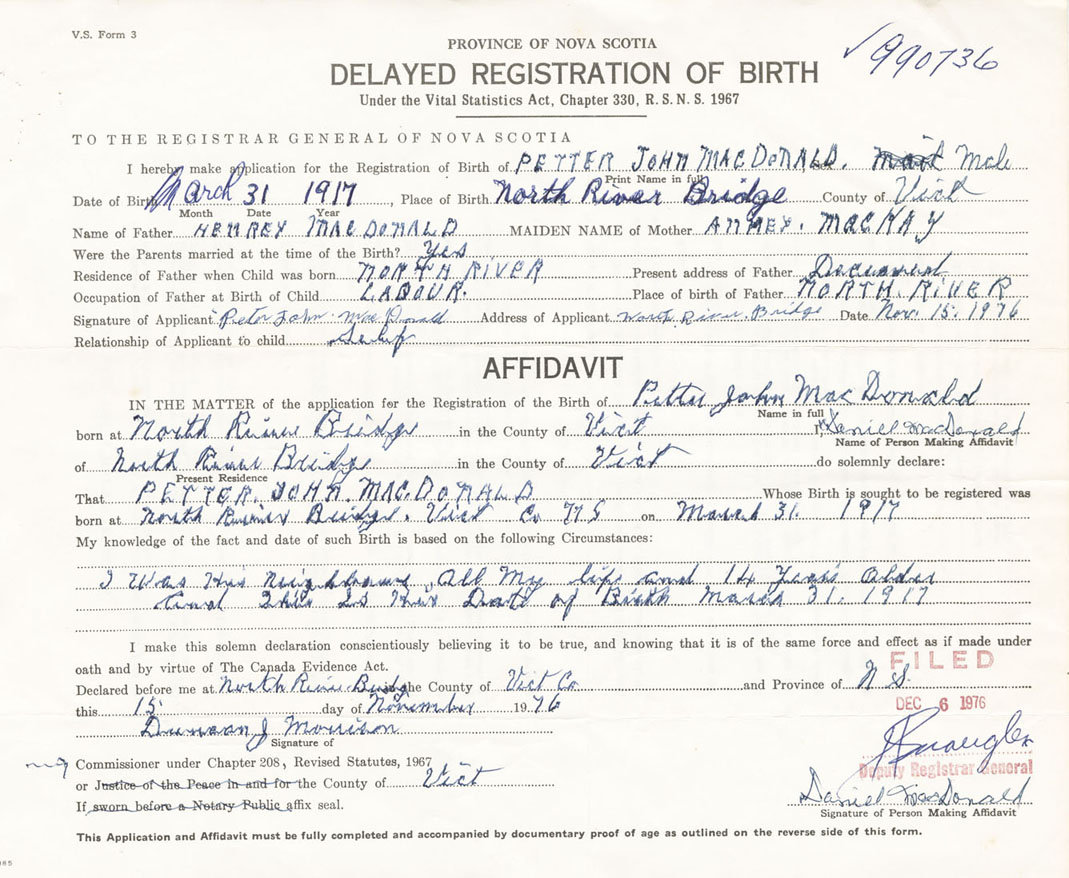 V.S. Form 3
PROVINCE OF NOVA SCOTIA
✓990736
DELAYED REGISTRATION OF BIRTH
Under the Vital Statistics Act, Chapter 330, R.S.N.S. 1967
TO THE REGISTRAR GENERAL OF NOVA SCOTIA
I hereby make application for the Registration of Birth of PETTER JOHN MACDONALD. Male
Print Name in full
Date of Birth March 31 1917, Place of Birth North River Bridge County of Vict
Month Date Year
Name of Father HENREY MACDONALD MAIDEN NAME of Mother ANNEY. MACKAY
Were the Parents married at the time of the Birth? Yes
Residence of Father when Child was born NORTH RIVER Present address of Father Deceased
Occupation of Father at Birth of Child LABOUR. Place of birth of Father NORTH RIVER
Signature of Applicant Peter John MacDonald Address of Applicant North River Bridge Date Nov. 15. 1976
Relationship of Applicant to child Self
AFFIDAVIT
IN THE MATTER of the application for the Registration of the Birth of Petter John MacDonald
Name in full
born at North River Bridge in the County of Vict I, Daniel MacDonald
Name of Person Making Affidavit
of North River Bridge in the County of Vict do solemnly declare:
Present Residence
That PETTER. JOHN. MACDONALD Whose Birth is sought to be registered was
born at North River Bridge. Vict Co NS on March 31. 1917
My knowledge of the fact and date of such Birth is based on the following Circumstances:
I Was His All My life and 14 Years Older
and This Is His Date of Birth March 31. 1917
I make this solemn declaration conscientiously believing it to be true, and knowing that it is of the same force and effect as if made under
oath and by virtue of The Canada Evidence Act.
FILED
Declared before me at North River Bridge in the County of Vict Co and Province of N S.
this 15 day of November 1976
DEC 6 1976
Duncan J Morrison
Signature of
Commissioner under Chapter 208, Revised Statutes, 1967
Deputy Registrar General
or Justice of the Peace in and for the County of Vict
Daniel MacDonald
If sworn before a Notary Public affix seal.
Signature of Person Making Affidavit
This Application and Affidavit must be fully completed and accompanied by documentary proof of age as outlined on the reverse side of this form.